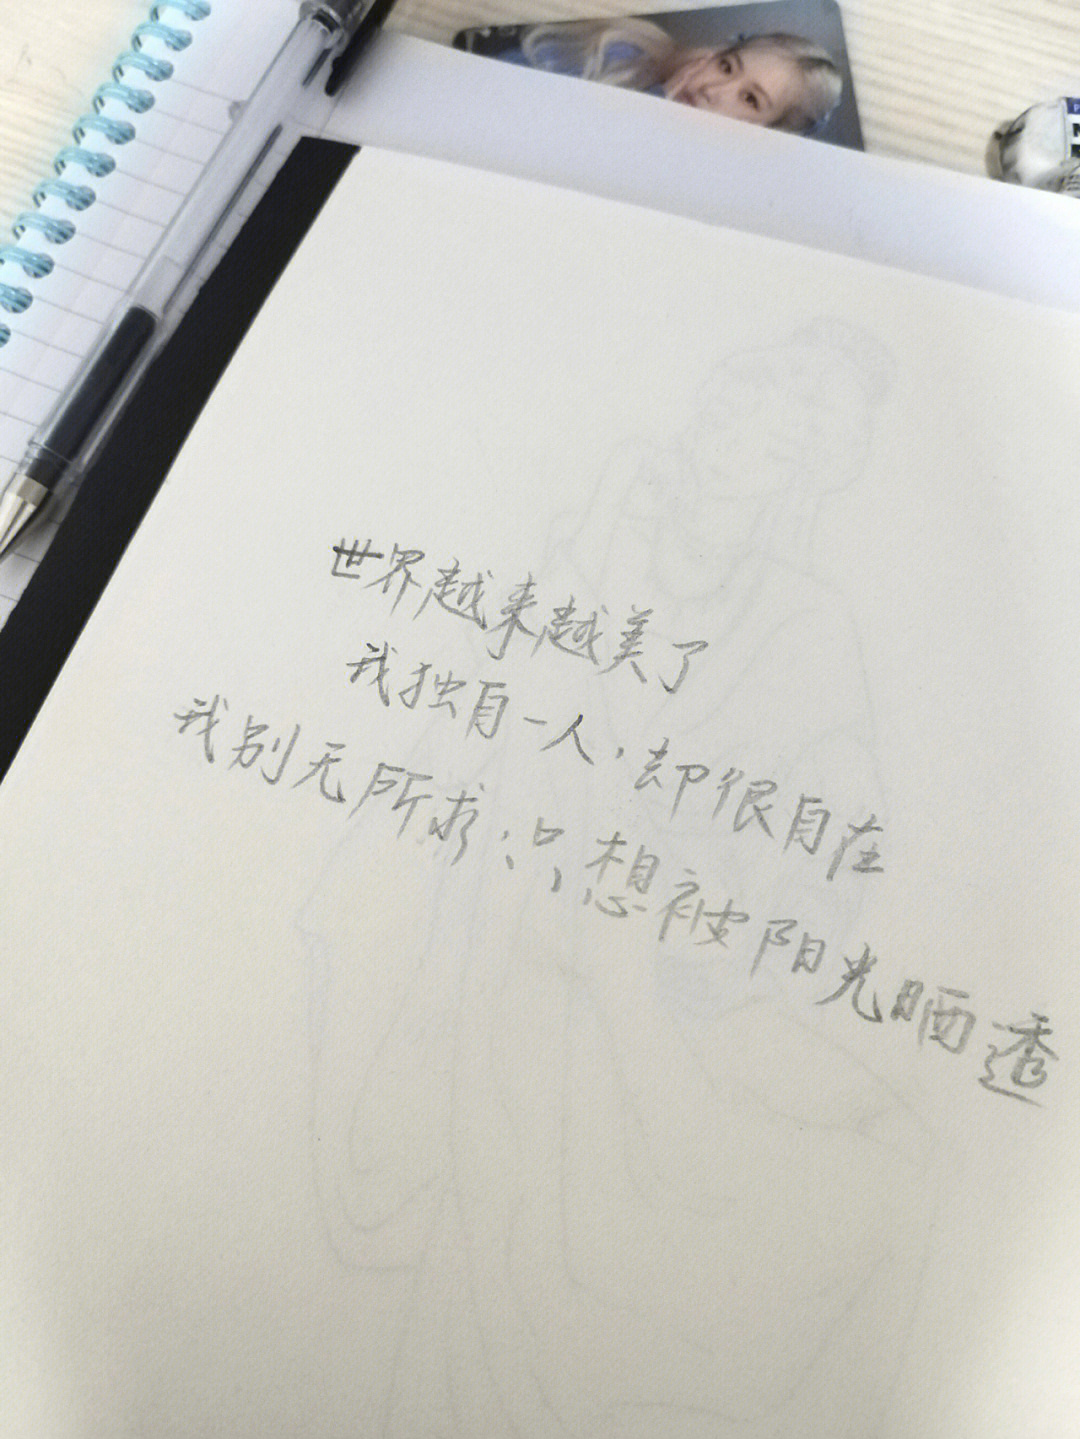 世界越来越美了
我独自一人,却很自在
我别无所求,只想被阳光晒透